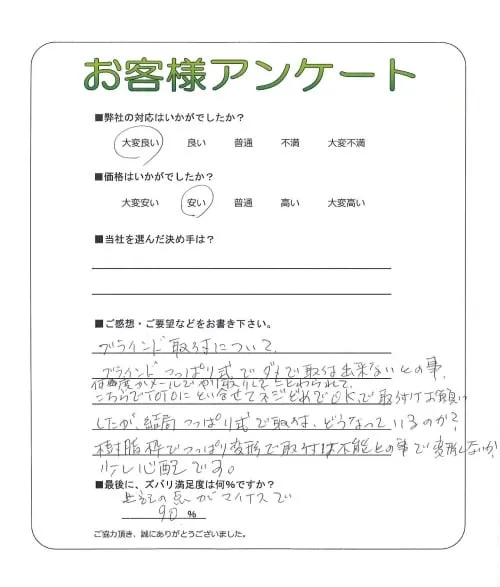 お客様アンケート
■弊社の対応はいかがでしたか?
大変良い 良い 普通 不満 大変不満
■価格はいかがでしたか?
大変安い 安い 普通 高い 大変高い
■当社を選んだ決め手は?
■ご感想・ご要望などをお書き下さい。
ブラインド取付について、
ブラインドつっぱり式でダメで取付出来ないとの事、
何度かメールでやり取りしてことわられて、
こちらでTOTOにとい合せてネジどめでOKで取付けお願い
したが、結局つっぱり式で取付、どうなっているのか?
樹脂枠でつっぱり変形で取付は不能との事で変形しないか、
少し心配です。
■最後に、ズバリ満足度は何%ですか?
上記の点がマイナスで
90 %
ご協力頂き、誠にありがとうございました。